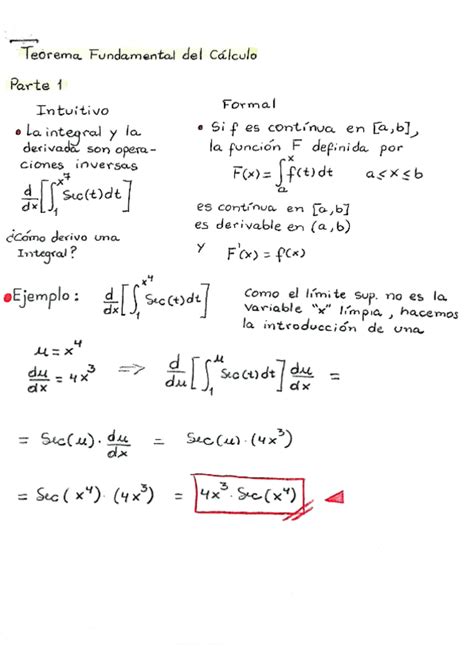 Teorema Fundamental del Cálculo
Parte 1
Intuitivo
• La integral y la
derivada son opera-
ciones inversas
d/dx[∫₁^x⁷ Sec(t)dt]
¿Cómo derivo una
Integral?
Formal
• Si f es contínua en [a,b],
la función F definida por
F(x) = ∫ₐ^x f(t)dt a≤x≤b
es contínua en [a,b]
es derivable en (a,b)
y F'(x) = f(x)
• Ejemplo: d/dx[∫₁^x⁴ Sec(t)dt]
Como el límite sup. no es la
variable "x" límpia, hacemos
la introducción de una
u = x⁴
du/dx = 4x³ => d/du[∫₁^u Sec(t)dt] du/dx =
= Sec(u) · du/dx = Sec(u) · (4x³)
= Sec(x⁴) · (4x³) = 4x³ · Sec(x⁴)